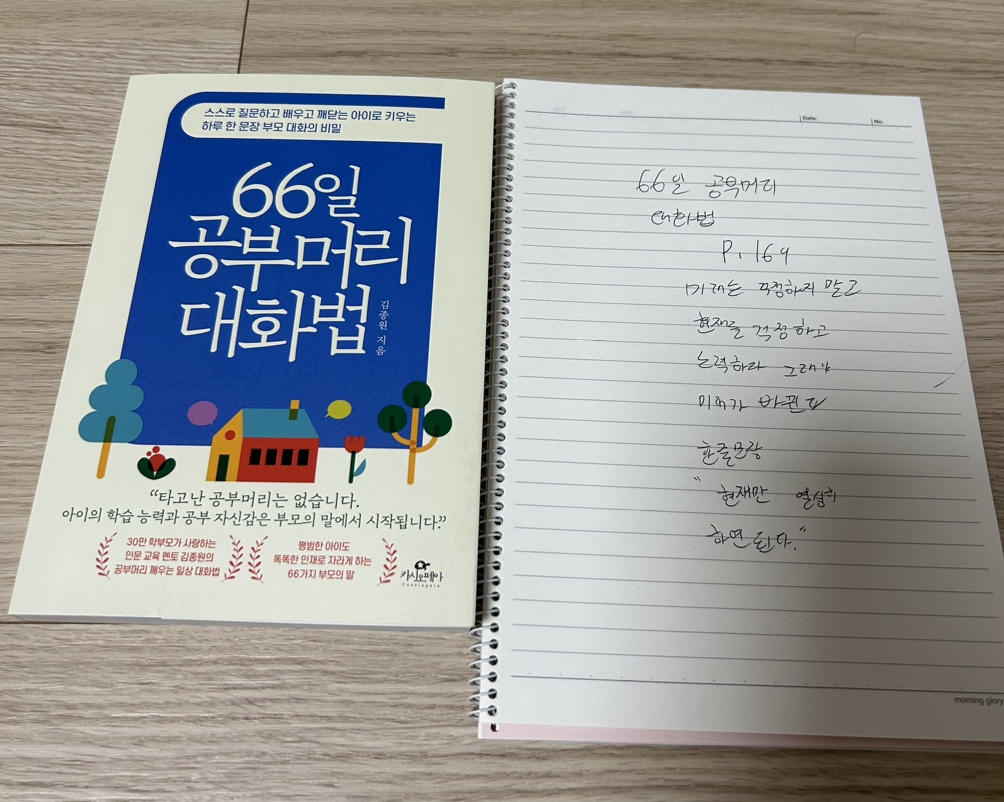 스스로 질문하고 배우고 깨닫는 아이로 키우는
하루 한 문장 부모 대화의 비밀
66일
공부머리
대화법
김종원 지음
“타고난 공부머리는 없습니다.
아이의 학습 능력과 공부 자신감은 부모의 말에서 시작됩니다.”
30만 학부모가 사랑하는
인문 교육 멘토 김종원의
공부머리 깨우는 일상 대화법
평범한 아이도
똑똑한 인재로 자라게 하는
66가지 부모의 말
카시오페아
Cassiopeia
Date.
No.
66일 공부머리
대화법
P. 169
미래는 걱정하지 말고
현재를 걱정하고
노력하라 그래야
미래가 바뀐다
한글문장
"현재만 열심히
하면 된다."
morning glory